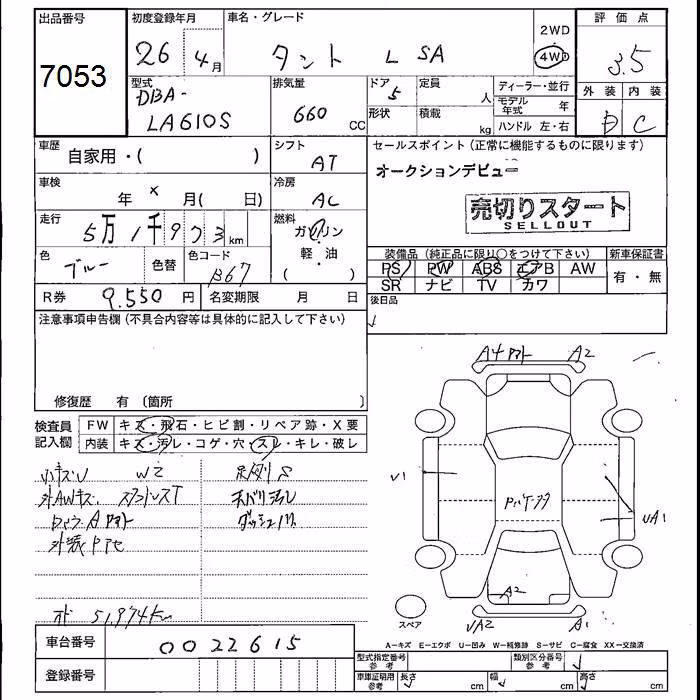 出品番号
7053
初度登録年月
26 4月
車名・グレード
タント L SA
2WD
4WD
評価点
3.5
外装 内装
B C
型式
DBA-
LA610S
排気量
660 CC
ドア
5
定員
人
形状
積載
kg
ディーラー・並行
モデル年式 年
ハンドル 左・右
車歴
自家用・( )
シフト
AT
車検
年 × 月( 日)
冷房
AC
走行
5万1千973km
燃料
ガソリン
軽・油
( )
色
ブルー
色替
色コード
B67
R券 9.550 円
名変期限 月 日
セールスポイント (正常に機能するものに限ります)
オークションデビュー
売切りスタート
SELLOUT
装備品 (純正品に限り○をつけて下さい)
新車保証書
PS PW ABS エアB AW
SR ナビ TV カワ
有・無
後日品
注意事項申告欄 (不具合内容等は具体的に記入して下さい)
修復歴 有 (箇所 )
検査員
記入欄
FW キズ・飛石・ヒビ割・リペア跡・X要
内装 キズ・汚レ・コゲ・穴・スレ・キレ・破レ
W2
外AWキズ
オド 51,974km
A4 A2
U1
UA1
A2
UA2 A1
スペア
A−キズ E−エクボ U−凹み W−補修跡 S−サビ C−腐食 XX−交換済
車台番号
0022615
登録番号
型式指定番号
参考
類別区分番号
参考
車庫証明用
参考
長さ cm
幅 cm
高さ cm